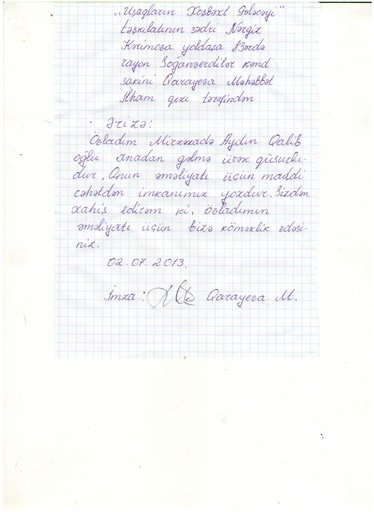 „Uşaqların Xoşbəxt Gələcəyi"
təşkilatının sədri Nərgiz
Kərimova yoldaşa Bərdə
rayon Soğanverdilər kənd
sakini Qarayeva Məhəbbət
İlham qızı tərəfindən
Ərizə:
Övladım Mirzəzadə Aydın Qalib
oğlu anadan gəlmə ürək qüsurlu
dur. Onun əməliyatı üçün maddi
cəhətdən imkanımız yoxdur. Sizdən
xahiş edirəm ki, övladımın
əməliyatı üçün bizə köməklik edəsi
niz.
02.07.2013.
İmza: Qarayeva M.